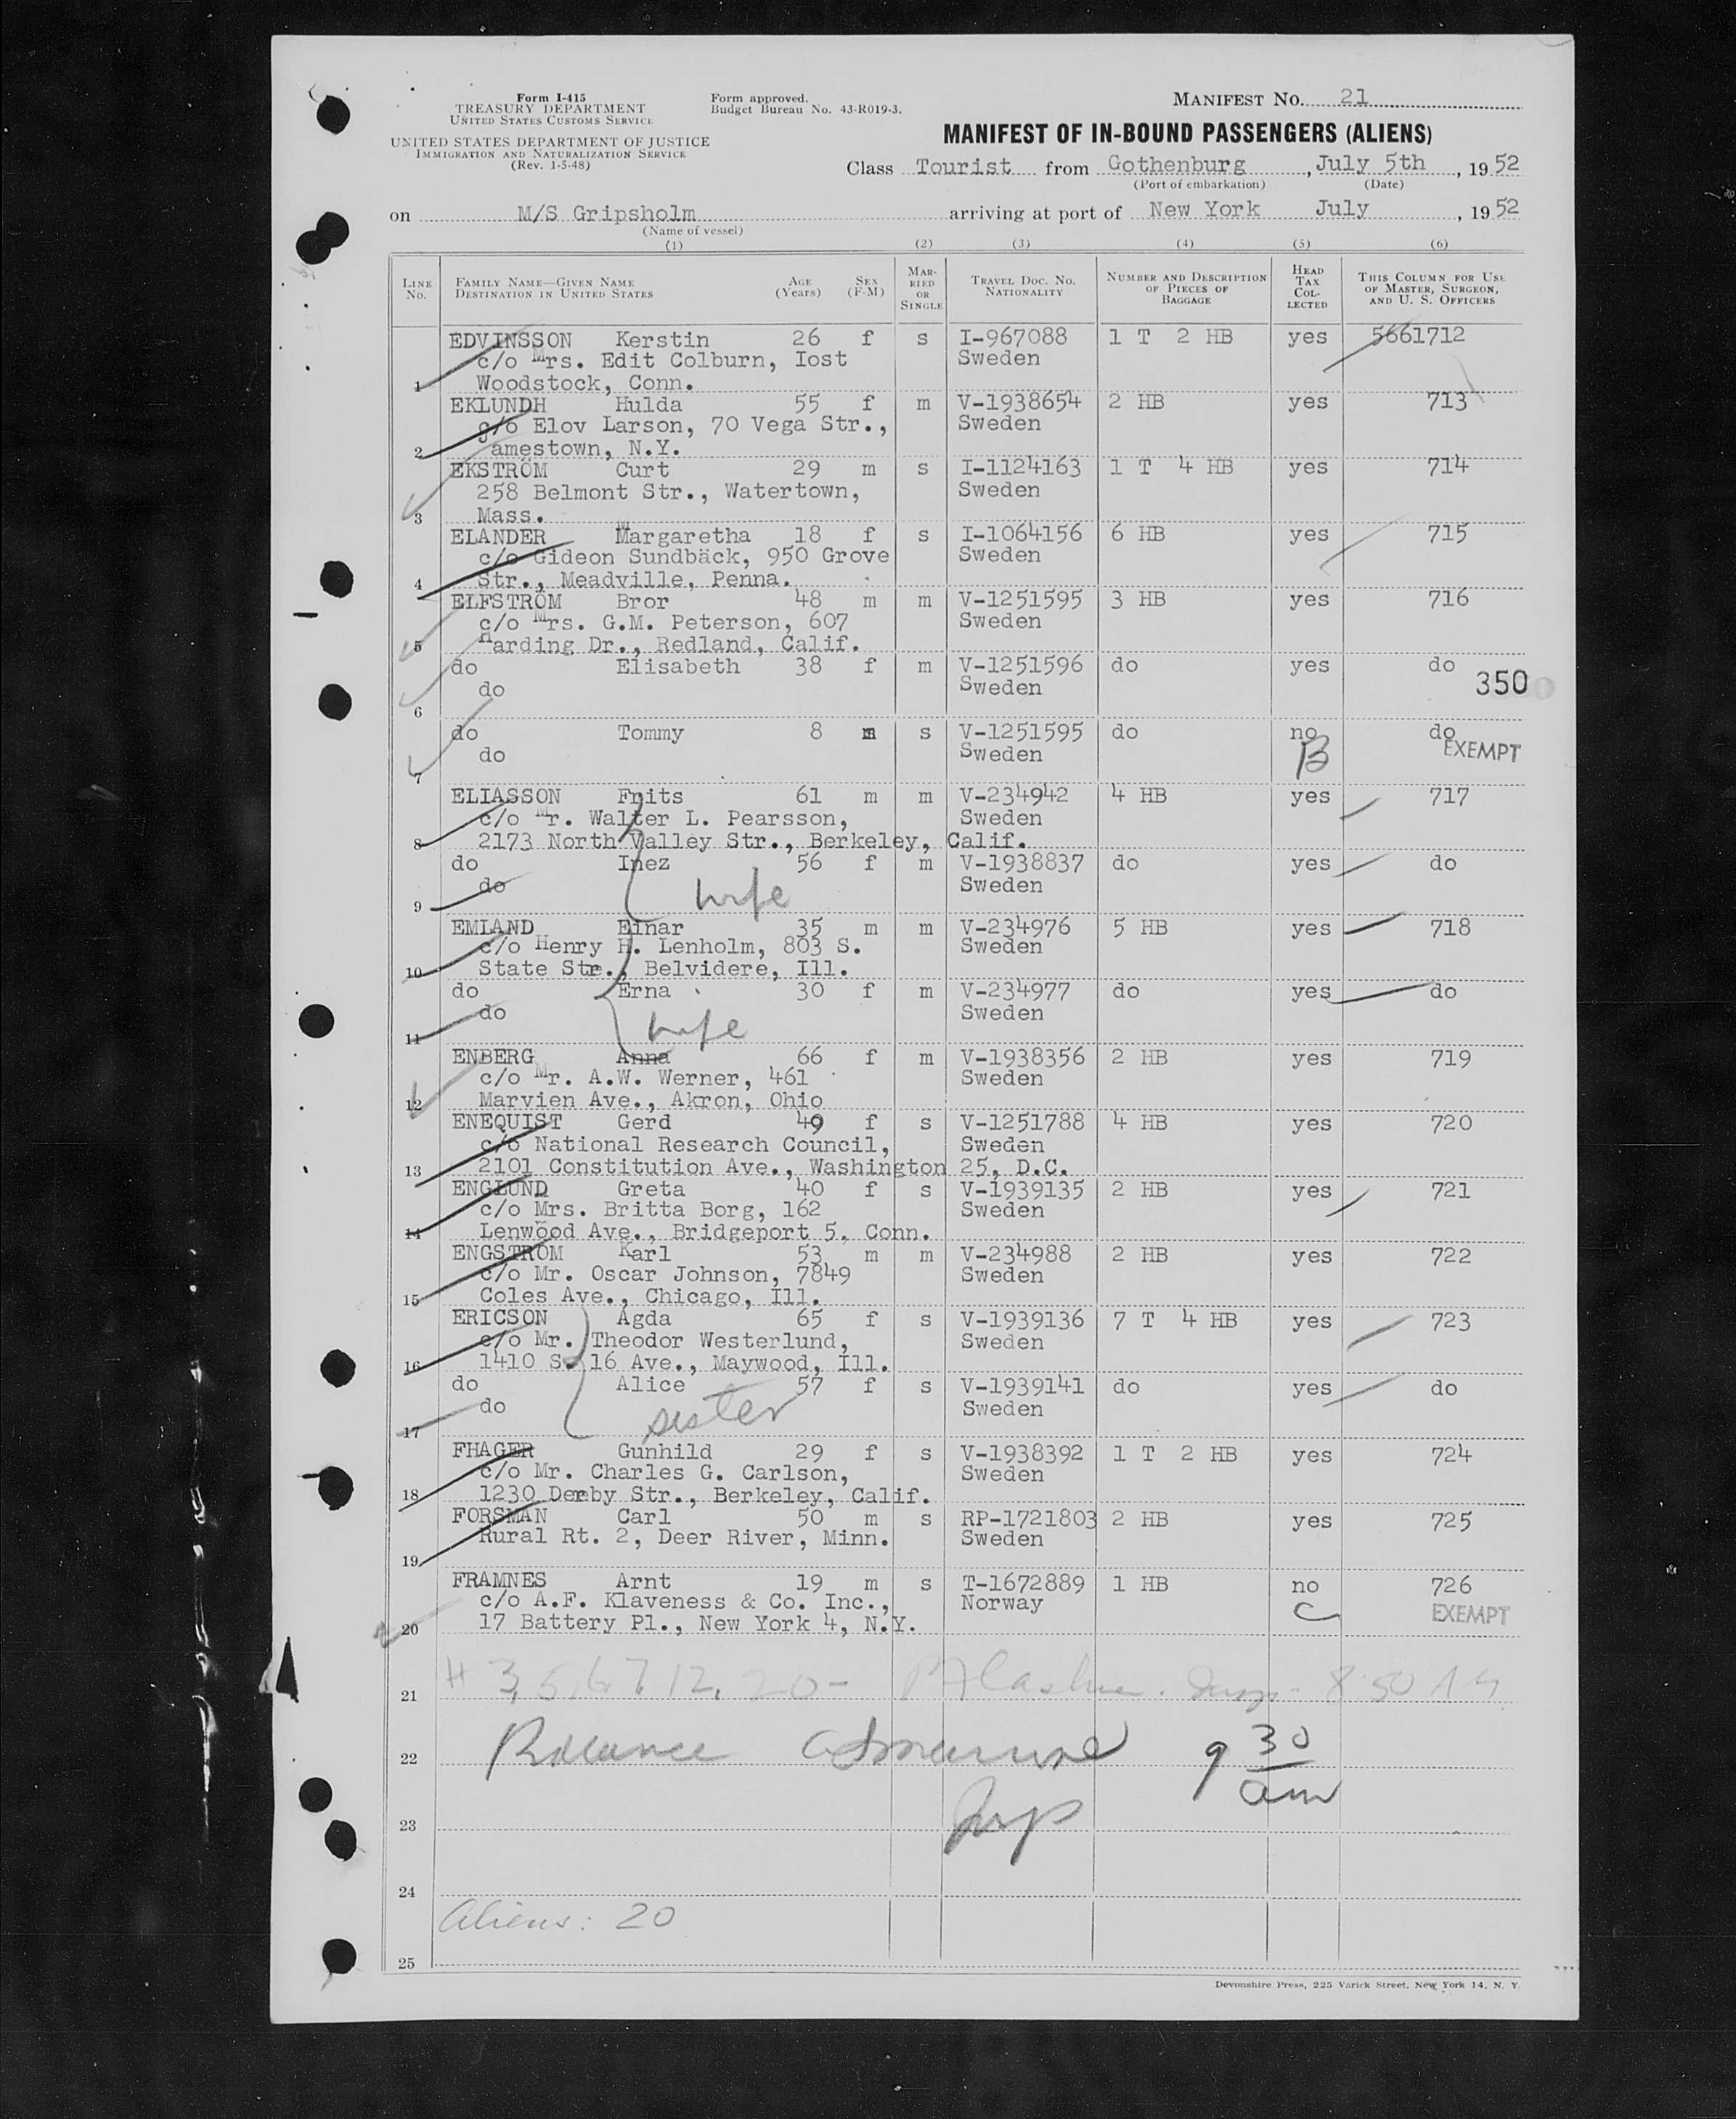 Form I-415
TREASURY DEPARTMENT
UNITED STATES CUSTOMS SERVICE
UNITED STATES DEPARTMENT OF JUSTICE
IMMIGRATION AND NATURALIZATION SERVICE
(Rev. 1-5-48)
Form approved.
Budget Bureau No. 43-R019-3.
MANIFEST No. 21
MANIFEST OF IN-BOUND PASSENGERS (ALIENS)
Class Tourist from Gothenburg, July 5th, 1952
(Port of embarkation) (Date)
on M/S Gripsholm arriving at port of New York July, 1952
(Name of vessel)
(1) (2) (3) (4) (5) (6)
LINE No. FAMILY NAME—GIVEN NAME DESTINATION IN UNITED STATES AGE (Years) SEX (F-M) MARRIED OR SINGLE TRAVEL DOC. NO. NATIONALITY NUMBER AND DESCRIPTION OF PIECES OF BAGGAGE HEAD TAX COLLECTED THIS COLUMN FOR USE OF MASTER, SURGEON, AND U. S. OFFICERS
EDVINSSON Kerstin 26 f s I-967088 1 T 2 HB yes 5661712
c/o Mrs. Edit Colburn, Iost Sweden
1 Woodstock, Conn.
EKLUNDH Hulda 55 f m V-1938654 2 HB yes 713
c/o Elov Larson, 70 Vega Str., Sweden
2 amestown, N.Y.
EKSTRÖM Curt 29 m s I-1124163 1 T 4 HB yes 714
258 Belmont Str., Watertown, Sweden
3 Mass.
ELANDER Margaretha 18 f s I-1064156 6 HB yes 715
c/o Gideon Sundbäck, 950 Grove Sweden
4 Str., Meadville, Penna.
ELFSTRÖM Bror 48 m m V-1251595 3 HB yes 716
c/o Mrs. G.M. Peterson, 607 Sweden
5 Harding Dr., Redland, Calif.
do Elisabeth 38 f m V-1251596 do yes do
do Sweden 350
6
do Tommy 8 m s V-1251595 do no do
do Sweden B EXEMPT
7
ELIASSON Frits 61 m m V-234942 4 HB yes 717
c/o Mr. Walter L. Pearsson, Sweden
8 2173 North Valley Str., Berkeley, Calif.
do Inez 56 f m V-1938837 do yes do
do wife Sweden
9
EMLAND Einar 35 m m V-234976 5 HB yes 718
c/o Henry H. Lenholm, 803 S. Sweden
10 State Str., Belvidere, Ill.
do Erna 30 f m V-234977 do yes do
do wife Sweden
11
ENBERG Anna 66 f m V-1938356 2 HB yes 719
c/o Mr. A.W. Werner, 461 Sweden
12 Marvien Ave., Akron, Ohio
ENEQUIST Gerd 49 f s V-1251788 4 HB yes 720
c/o National Research Council, Sweden
13 2101 Constitution Ave., Washington 25, D.C.
ENGLUND Greta 40 f s V-1939135 2 HB yes 721
c/o Mrs. Britta Borg, 162 Sweden
14 Lenwood Ave., Bridgeport 5, Conn.
ENGSTRÖM Karl 53 m m V-234988 2 HB yes 722
c/o Mr. Oscar Johnson, 7849 Sweden
15 Coles Ave., Chicago, Ill.
ERICSON Agda 65 f s V-1939136 7 T 4 HB yes 723
c/o Mr. Theodor Westerlund, Sweden
16 1410 S. 16 Ave., Maywood, Ill.
do Alice 57 f s V-1939141 do yes do
do sister Sweden
17
FHAGER Gunhild 29 f s V-1938392 1 T 2 HB yes 724
c/o Mr. Charles G. Carlson, Sweden
18 1230 Derby Str., Berkeley, Calif.
FORSMAN Carl 50 m s RP-1721803 2 HB yes 725
Rural Rt. 2, Deer River, Minn. Sweden
19
FRAMNES Arnt 19 m s T-1672889 1 HB no 726
c/o A.F. Klaveness & Co. Inc., Norway C EXEMPT
20 17 Battery Pl., New York 4, N.Y.
21 # 3, 5, 6, 7, 12, 20 - Insp. - 8:50 AM
22 Balance 9 30 am
23 Insp
24
Aliens: 20
25
Devonshire Press, 225 Varick Street, New York 14, N. Y.